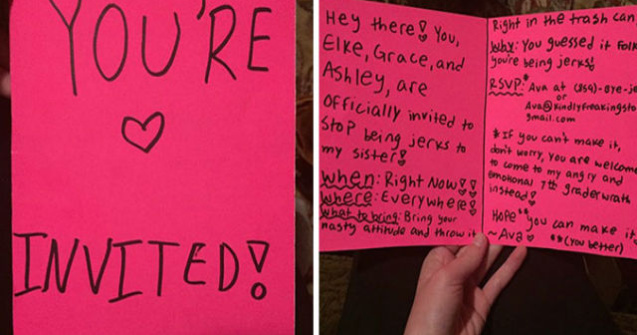 YOU'RE
INVITED!
Hey there! You,
Elke, Grace, and
Ashley, are
officially invited to
stop being jerks to
my sister!
when: Right Now!!
where: Everywhere!
what to bring: Bring your
nasty attitude and throw it
Right in the trash can
Why: You guessed it folk
you're being jerks!
RSVP: Ava at
or
Ava@kindlyfreakingsto
gmail.com
*If you can't make it,
don't worry, you are welcome
to come to my angry and
emotional 7th grader wrath
instead!
Hope **you can make it
~Ava
**(You better)